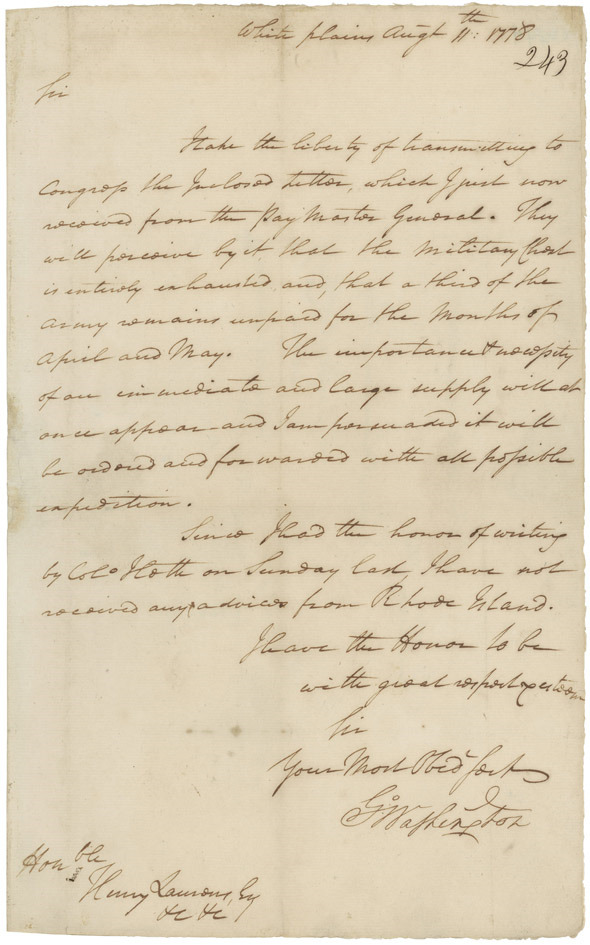 White plains Augt 11th: 1778
243
Sir
I take the liberty of transmitting to
Congress the Inclosed Letter, which I just now
received from the Pay Master General. They
will perceive by it, that the Military Chest
is entirely exhausted and, that a third of the
Army remains unpaid for the Months of
April and May. The importance & necessity
of an immediate and large supply will at
once appear and I am persuaded it will
be ordered and forwarded with all possible
expedition.
Since I had the honor of writing
by Colo Heth on Sunday last, I have not
received any advices from Rhode Island.
I have the Honor to be
with great respect & esteem
Sir
Your Most Obedt Servt
Go Washington
Honble
Henry Laurens, Esq
&c &c